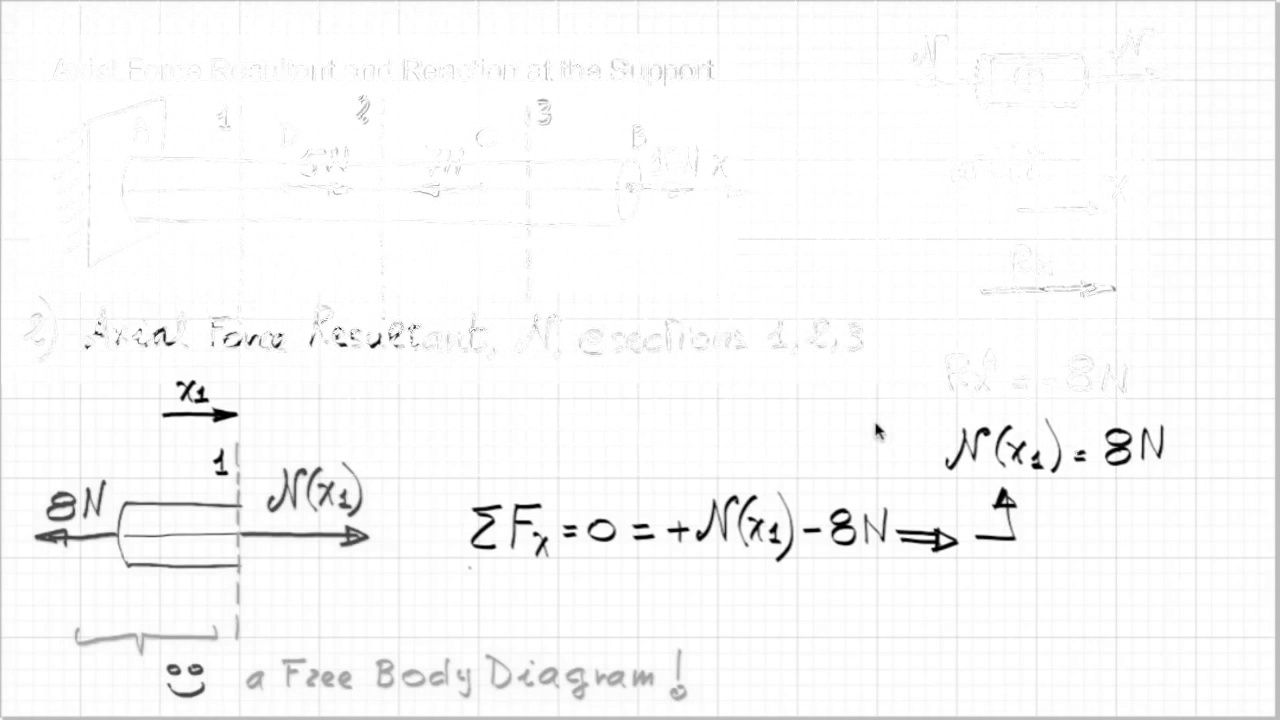 Axial Force Resultant and Reaction at the Support
N N
1 2 3
A D C B
5N 7N x
x
Rx
2) Axial Force Resultant, N, @sections 1,2,3
Rx^A = -8N
x₁
N(x₁) = 8N
1
8N N(x₁)
ΣFₓ = 0 = +N(x₁) - 8N ⇒
a Free Body Diagram!